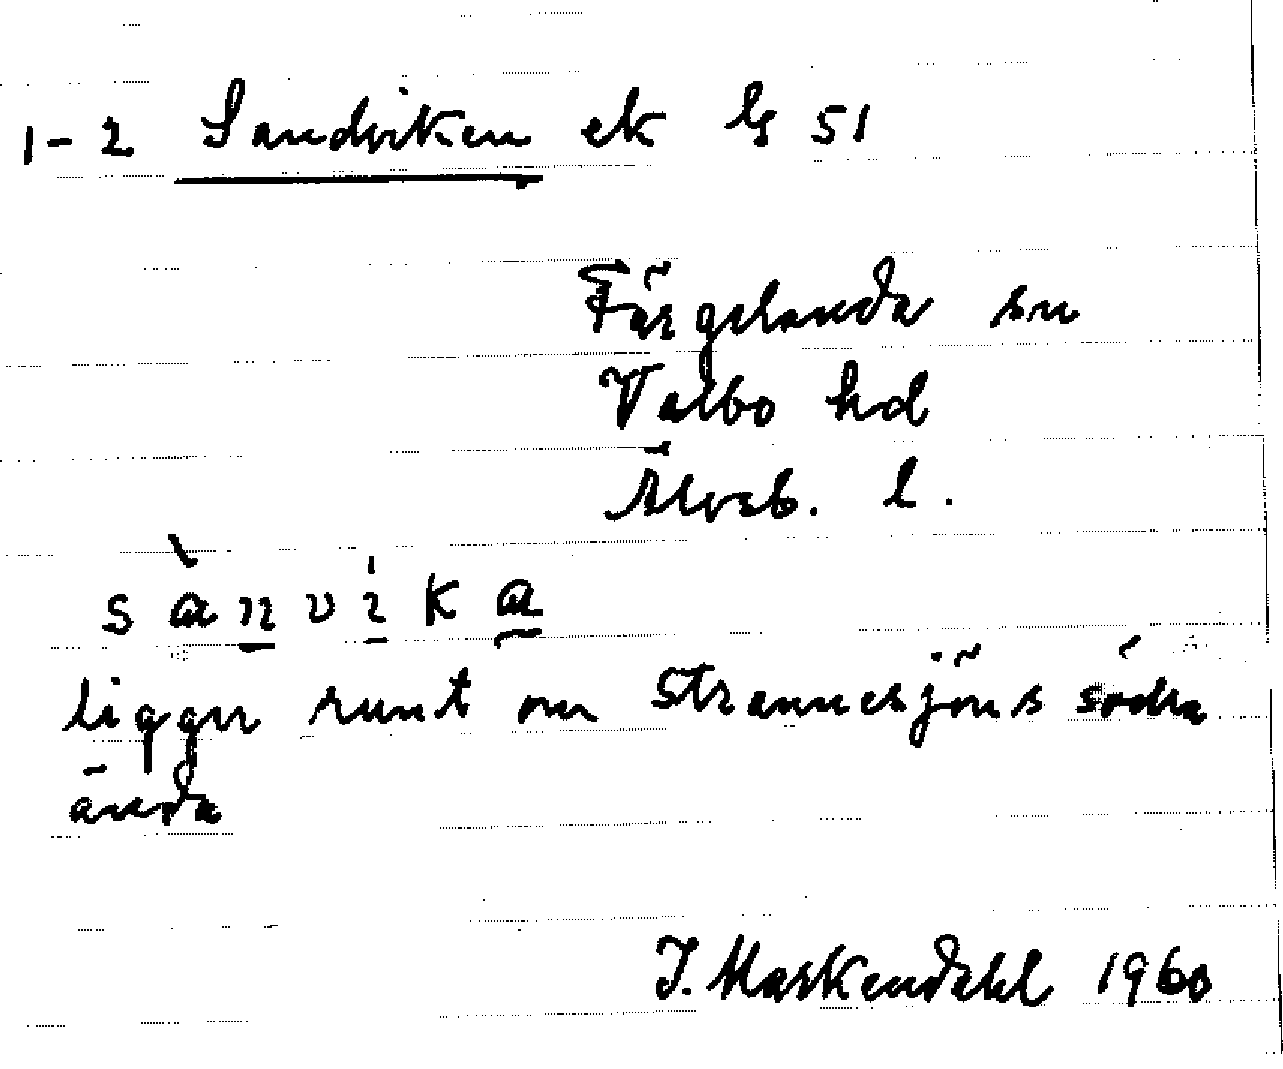 1-2 Sandviken ek G 51
Färgelanda sn
Valbo hd
Älvsb. l.
sànvika
ligger runt om Strannesjöns södra
ända
J. Markendahl 1960